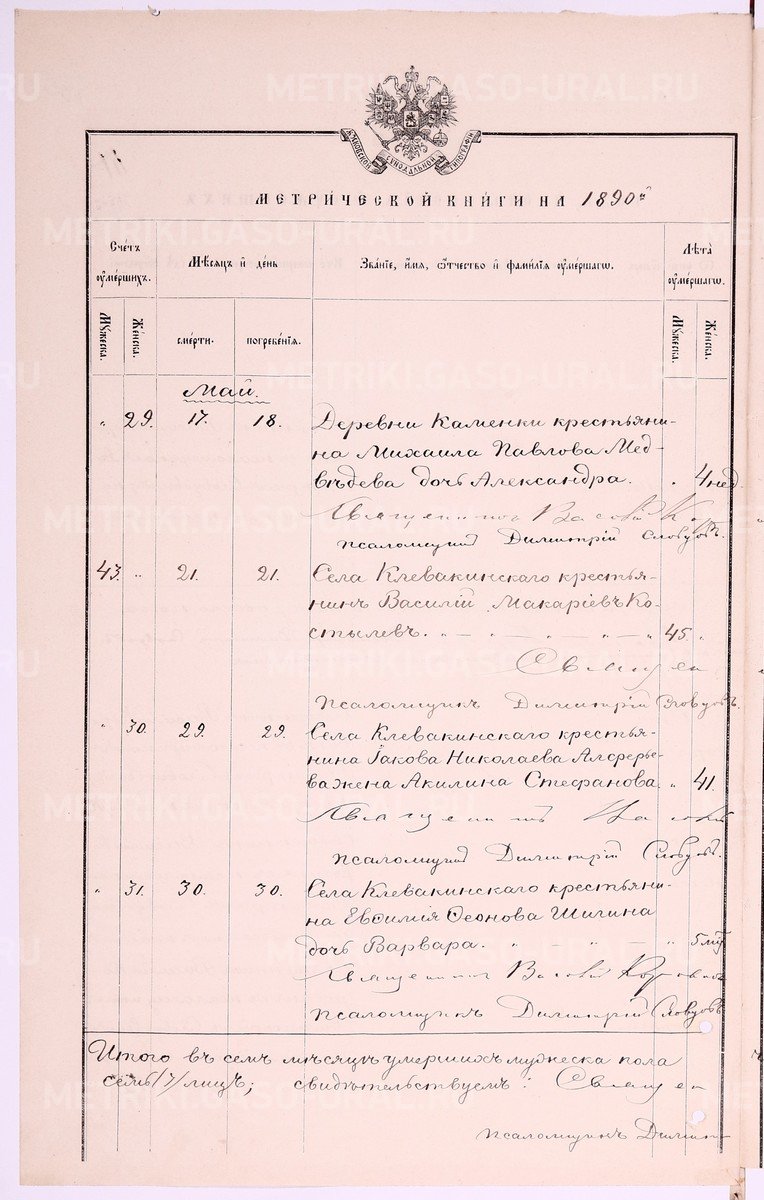 МОСКОВСКОЙ СѴНОДАЛЬНОЙ ТИПОГРАФІИ
МЕТРИ́ЧЕСКОЙ КНИ́ГИ НА 1890й
Сче́тъ ᲂу҆ме́ршихъ.
Мѣ́сяцъ и҆ де́нь
Зва́нїе, и҆́мя, ѻ҆́тчество и҆ фами́лїѧ ᲂу҆ме́ршагѡ.
Лѣ́та ᲂу҆ме́ршагѡ.
Мꙋ́жеска.
Же́нска.
сме́рти.
погребе́нїѧ.
Мꙋ́жеска.
Же́нска.
Май.
" 29. 17. 18. Деревни Каменки крестьяни-
на Михаила Павлова Мед-
вѣдева дочь Александра. " 4 нед
Священникъ
Псаломщикъ Димитрій Словцовъ.
43. " 21. 21. Села Клевакинскаго крестья-
нинъ Василій Макаріевъ Ко-
стылевъ. " — " — " — " 45. "
Священ
Псаломщикъ Димитрій Словцовъ.
" 30. 29. 29. Села Клевакинскаго крестья-
нина Іакова Николаева Алферье-
ва жена Акилина Стефанова. " 41.
Священникъ
Псаломщикъ Димитрій Словцовъ.
" 31. 30. 30. Села Клевакинскаго крестьяни-
на Евѳимія Ѳеонова Шигина
дочь Варвара. " — " — " 5 мц
Священникъ
Псаломщикъ Димитрій Словцовъ
Итого въ семъ мѣсяцѣ умершихъ мужеска пола
семь /7/ лицъ; свидѣтельствуемъ: Священ
псаломщикъ Димит
METRIKI.GASO-URAL.RU